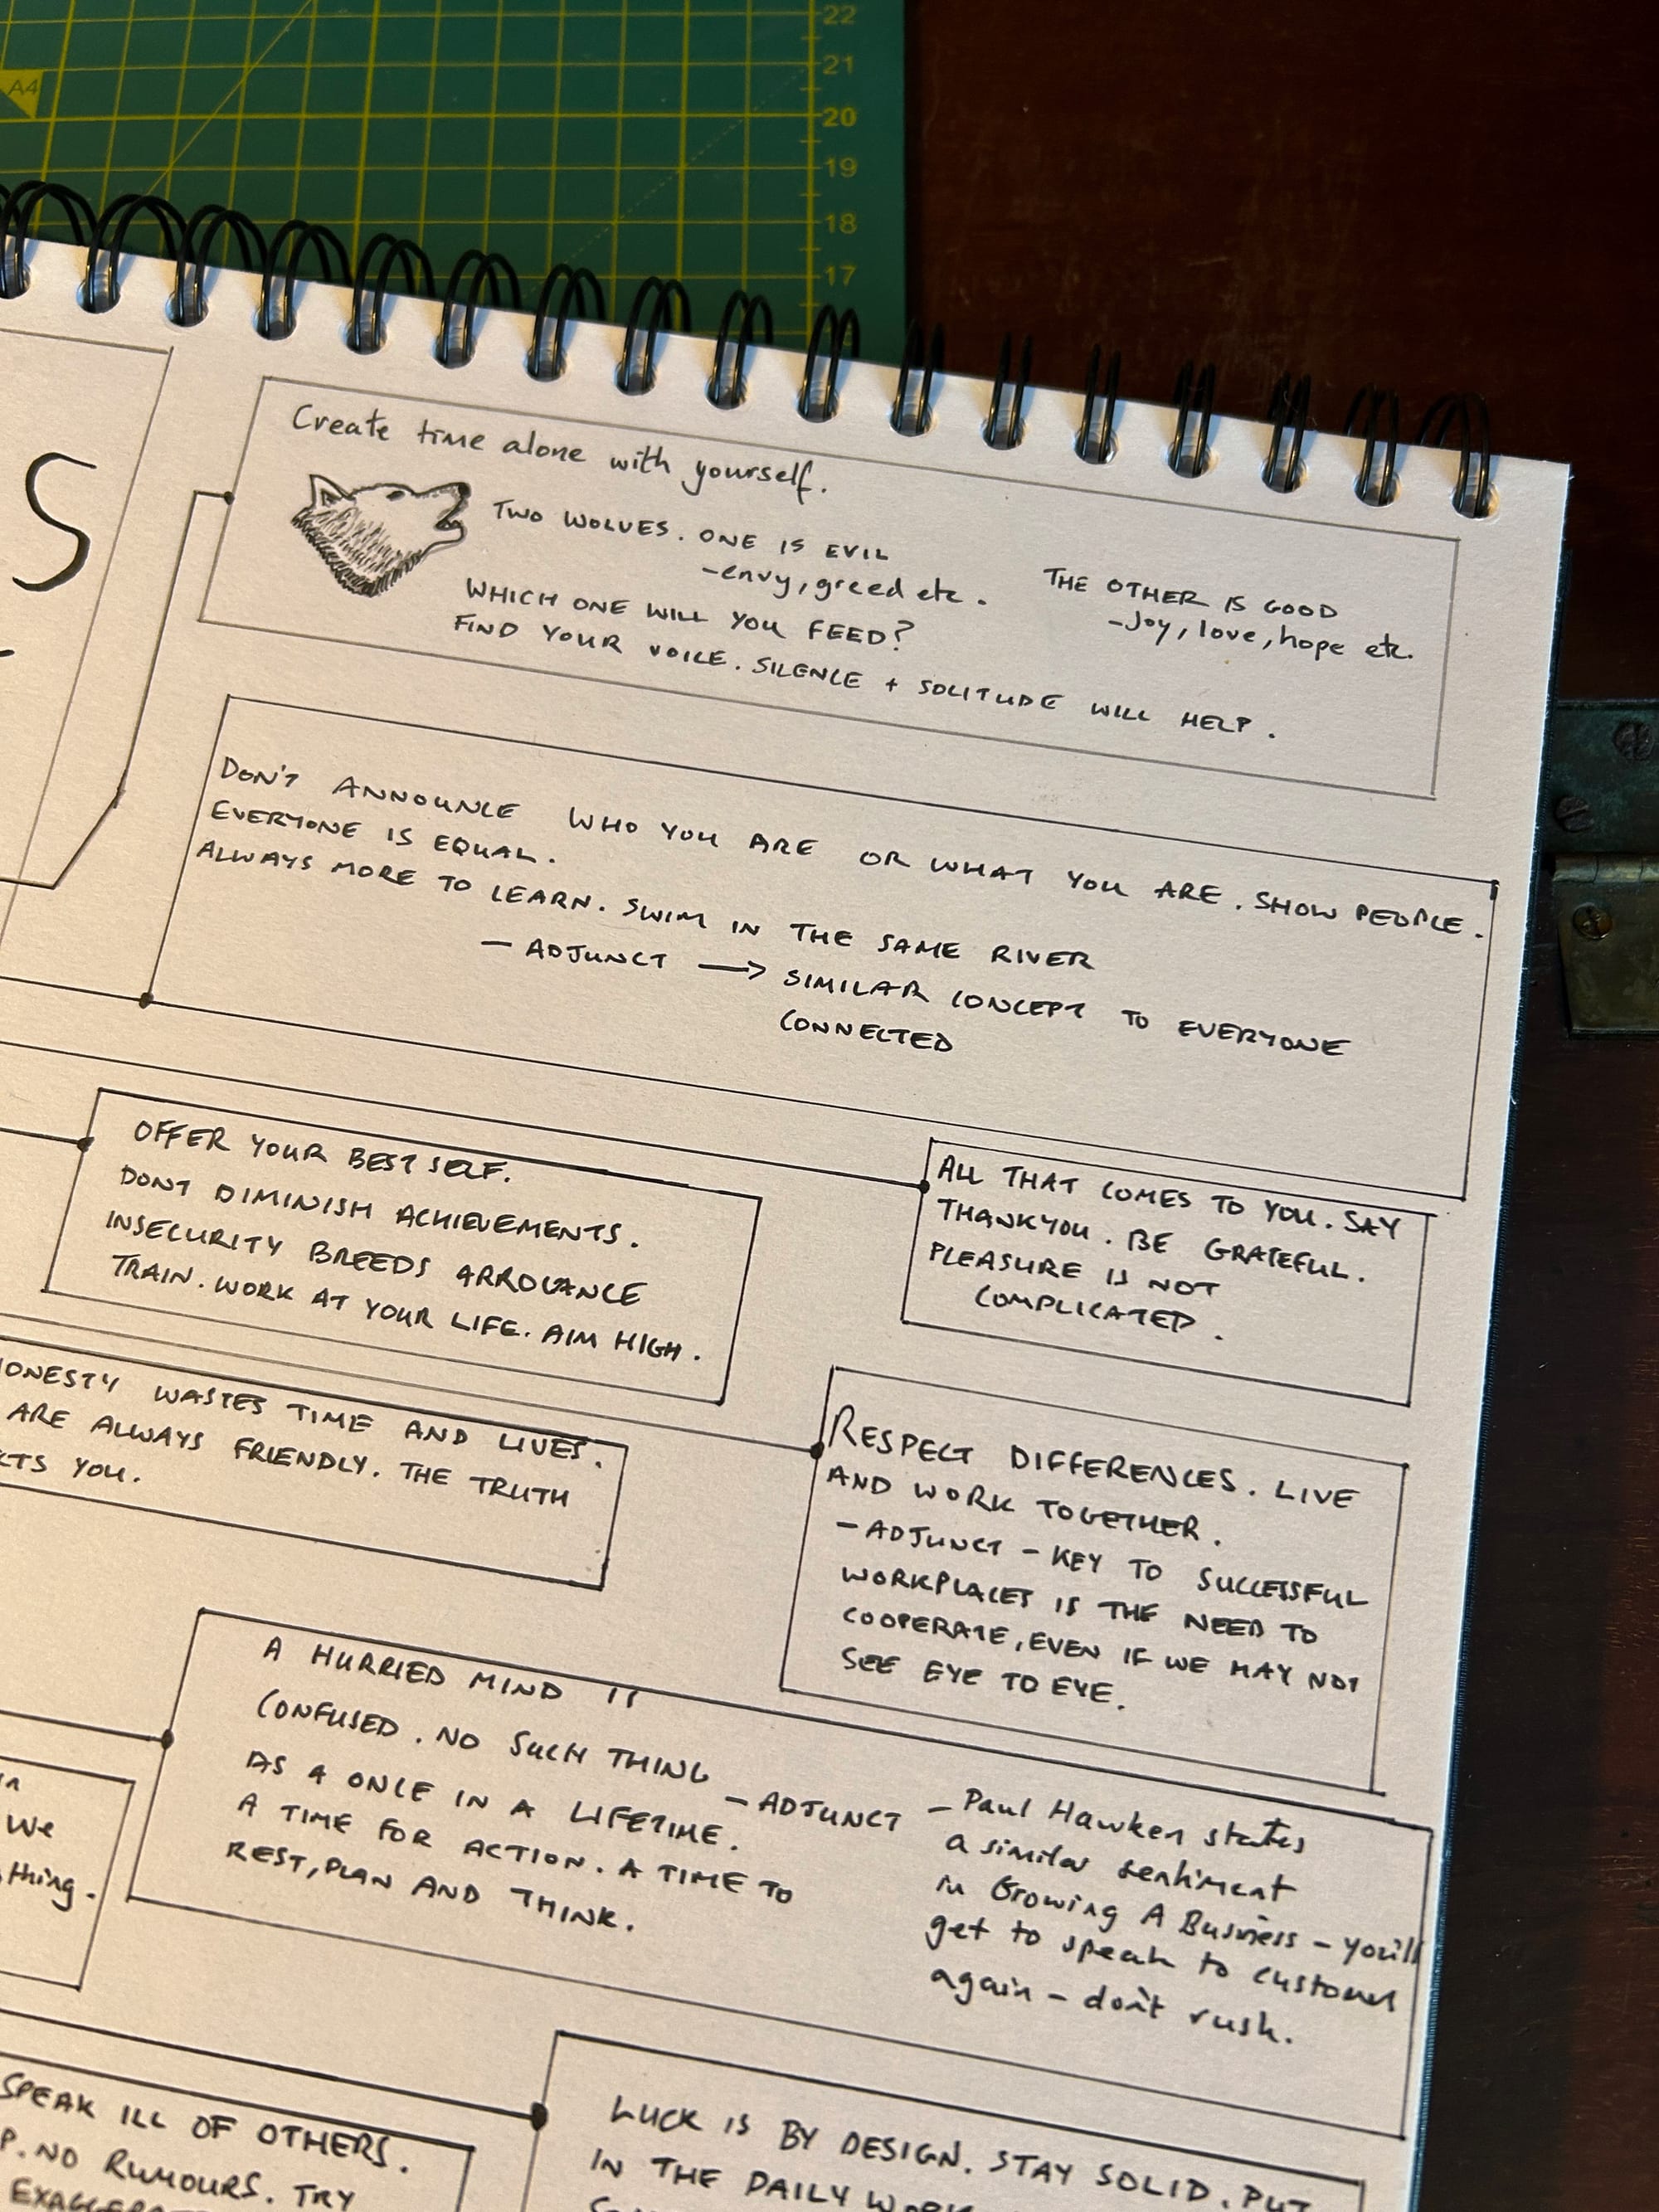 22
21
A4
20
19
18
17
S
Create time alone with yourself.
TWO WOLVES. ONE IS EVIL
-envy, greed etc.
THE OTHER IS GOOD
-Joy, love, hope etc.
WHICH ONE WILL YOU FEED?
FIND YOUR VOICE. SILENCE + SOLITUDE WILL HELP.
DON'T ANNOUNCE WHO YOU ARE OR WHAT YOU ARE. SHOW PEOPLE.
EVERYONE IS EQUAL.
ALWAYS MORE TO LEARN. SWIM IN THE SAME RIVER
- ADJUNCT → SIMILAR CONCEPT TO EVERYONE
CONNECTED
OFFER YOUR BEST SELF.
DONT DIMINISH ACHIEVEMENTS.
INSECURITY BREEDS ARROGANCE
TRAIN. WORK AT YOUR LIFE. AIM HIGH.
ALL THAT COMES TO YOU. SAY
THANKYOU. BE GRATEFUL.
PLEASURE IS NOT
COMPLICATED.
ONESTY WASTES TIME AND LIVES.
ARE ALWAYS FRIENDLY. THE TRUTH
CTS YOU.
RESPECT DIFFERENCES. LIVE
AND WORK TOGETHER.
- ADJUNCT - KEY TO SUCCESSFUL
WORKPLACES IS THE NEED TO
COOPERATE, EVEN IF WE MAY NOT
SEE EYE TO EYE.
A HURRIED MIND IS
CONFUSED. NO SUCH THING
AS A ONCE IN A LIFETIME.
A TIME FOR ACTION. A TIME TO
REST, PLAN AND THINK.
- ADJUNCT - Paul Hawken states
a similar sentiment
in Growing A Business - you'll
get to speak to customer
again - don't rush.
We
thing.
SPEAK ILL OF OTHERS.
P. NO RUMOURS. TRY
LUCK IS BY DESIGN. STAY SOLID. PUT
IN THE DAILY WORK